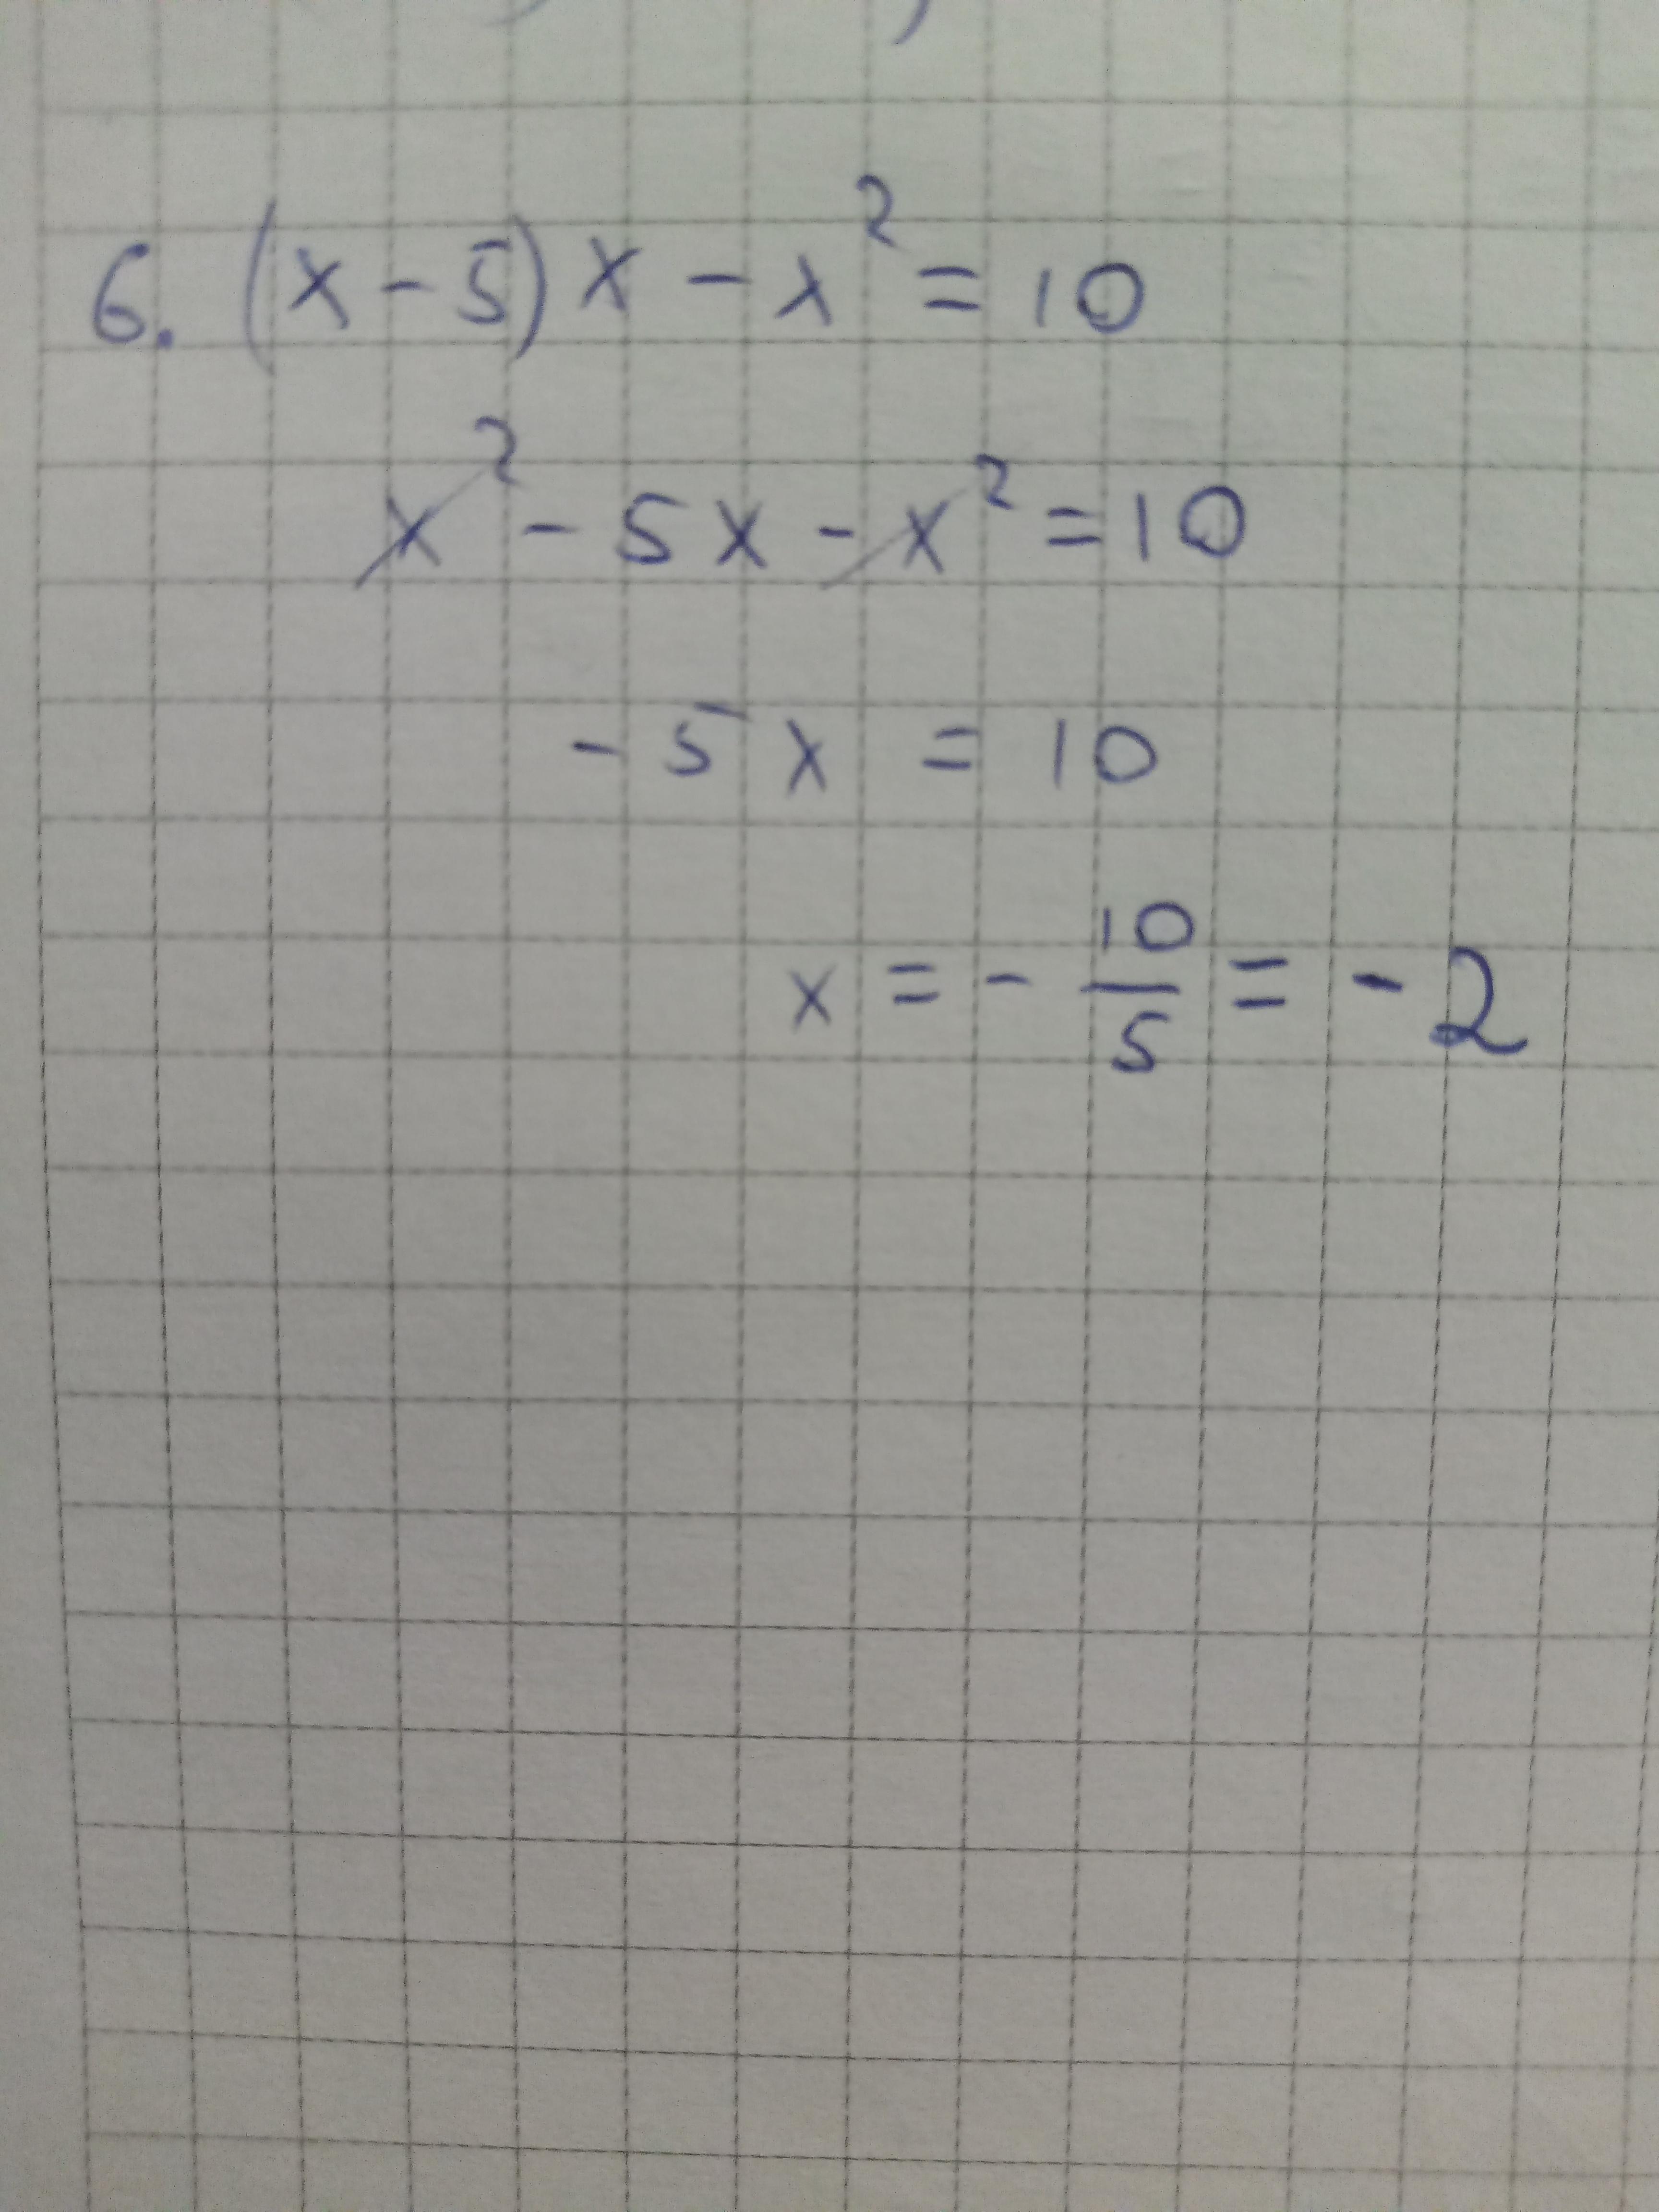 6. (x - 5) x - x² = 10
x² - 5x - x² = 10
- 5x = 10
x = - 10/5 = - 2